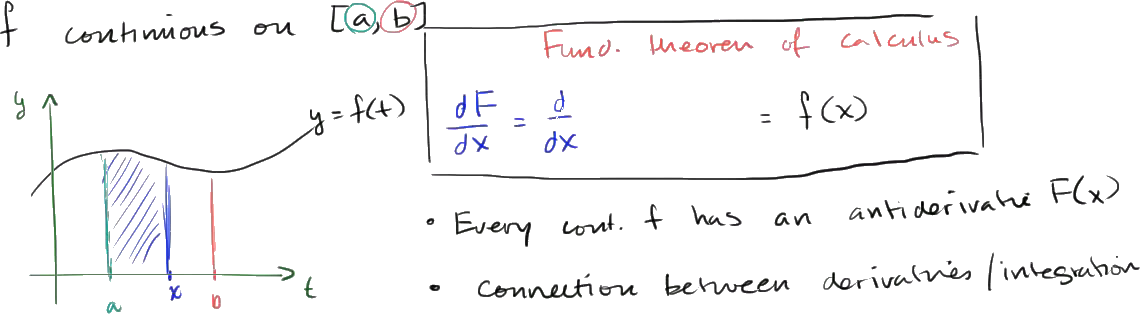 f continuous on [a, b]
Fund. theorem of calculus
dF/dx = d/dx = f(x)
y
y = f(t)
a x b t
• Every cont. f has an antiderivative F(x)
• connection between derivatives/integration